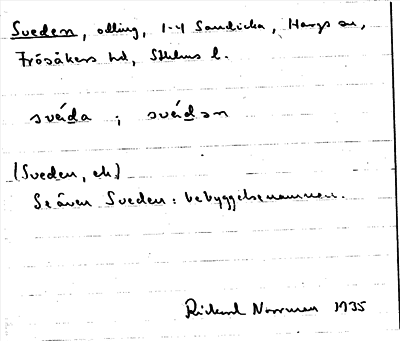 Sveden, odling, 1-4 Sandicka, Hargs sn,
Frösåkers hd, Sthlms l.
svéi̯da ; svéi̯dən
(Sveden, ek)
Se även Sveden: bebyggelsenamnen.
Rickard Norrman 1935